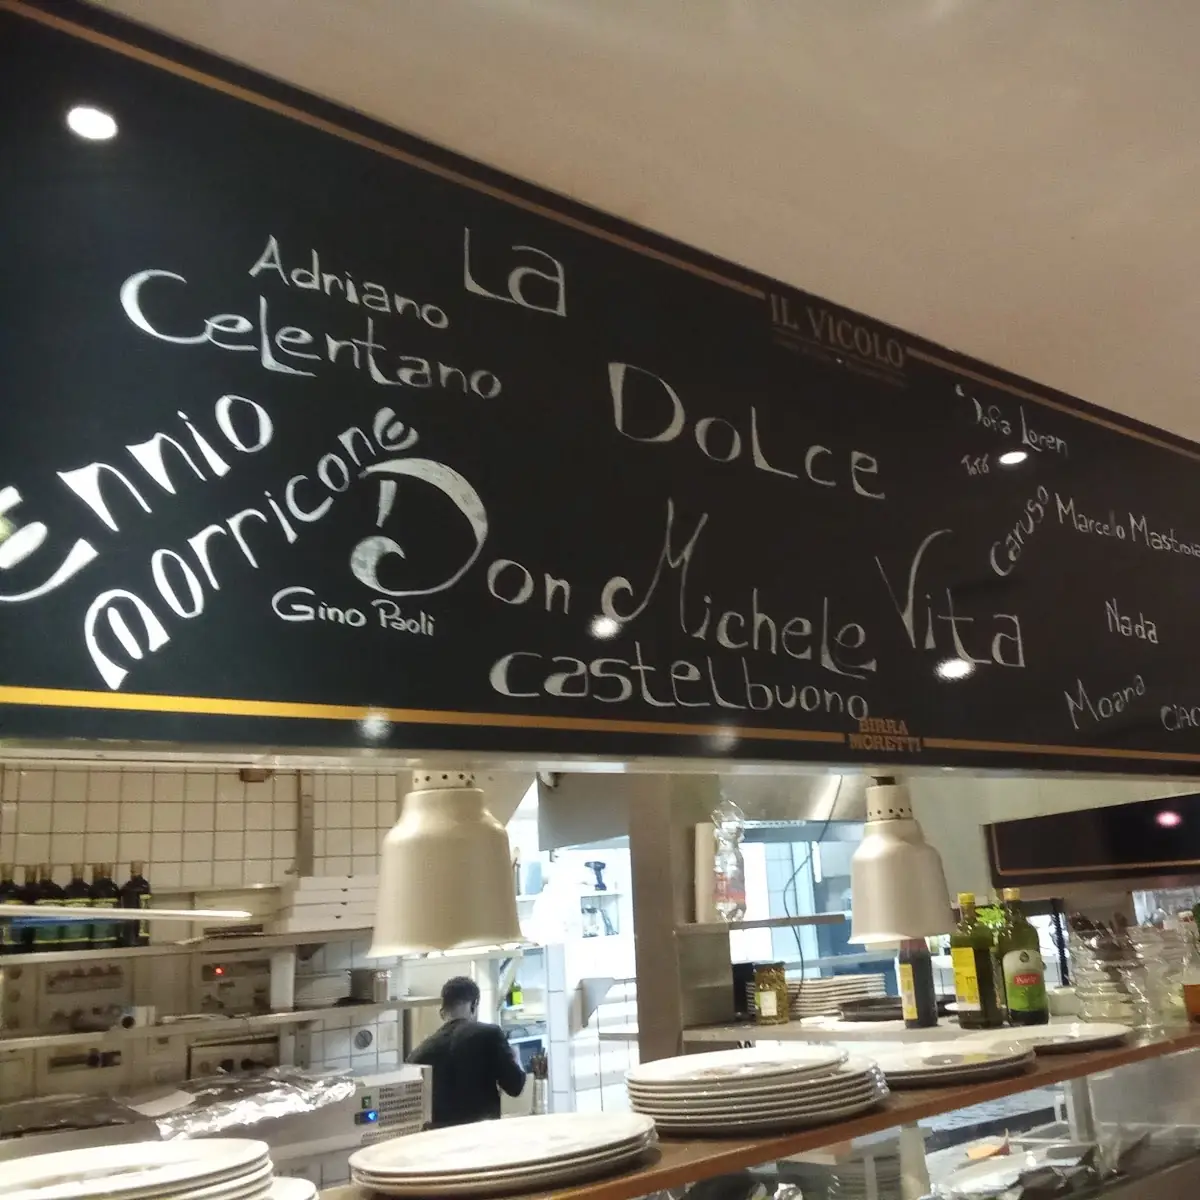 Adriano
Celentano
Ennio
Morricone
Gino Paoli
La
Dolce
Vita
Don Michele
Castelbuono
IL VICOLO
BIRRA
MORETTI
Sofia Loren
Totò
Caruso
Marcello
Nada
Moana